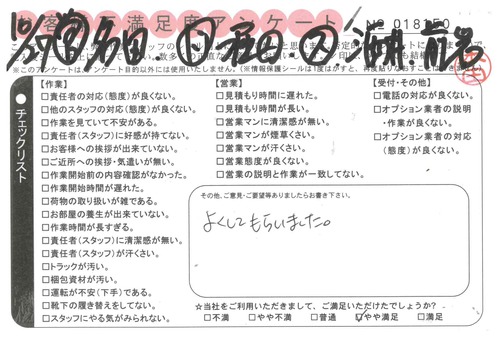 お客様満足度アンケート № 018150
※このアンケートは、アンケート目的以外には使用いたしません。
チェックリスト
【作業】
□責任者の対応(態度)が良くない。
□他のスタッフの対応(態度)が良くない。
□作業を見ていて不安がある。
□責任者(スタッフ)に好感が持てない。
□お客様への挨拶が出来ていない。
□ご近所への挨拶・気遣いが無い。
□作業開始前の内容確認がなかった。
□作業開始時間が遅れた。
□荷物の取り扱いが雑である。
□お部屋の養生が出来ていない。
□作業時間が長すぎる。
□責任者(スタッフ)に清潔感が無い。
□責任者(スタッフ)が汗くさい。
□トラックが汚い。
□梱包資材が汚い。
□運転が不安(下手)である。
□靴下の履き替えをしてない。
□スタッフにやる気がみられない。
【営業】
□見積もり時間に遅れた。
□見積もり時間が長い。
□営業マンに清潔感が無い。
□営業マンが煙草くさい。
□営業マンが汗くさい。
□営業態度が良くない。
□営業の説明と作業が一致してない。
【受付・その他】
□電話の対応が良くない。
□オプション業者の説明
・作業が良くない。
□オプション業者の対応
(態度)が良くない。
その他、ご意見・ご要望等ありましたらお書き下さい。
よくしてもらいました。
☆当社をご利用いただきまして、ご満足いただけたでしょうか?
□不満 □やや不満 □普通 ☑やや満足 □満足